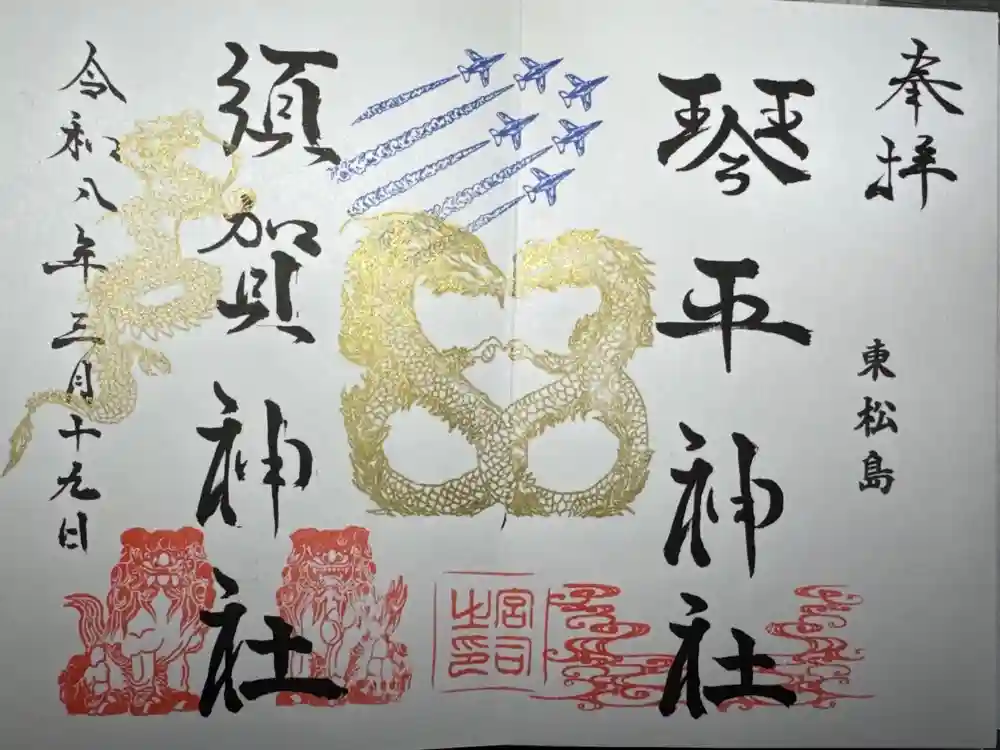 奉拝
東松島
琴平神社
須賀神社
令和八年三月十九日
宮司之印